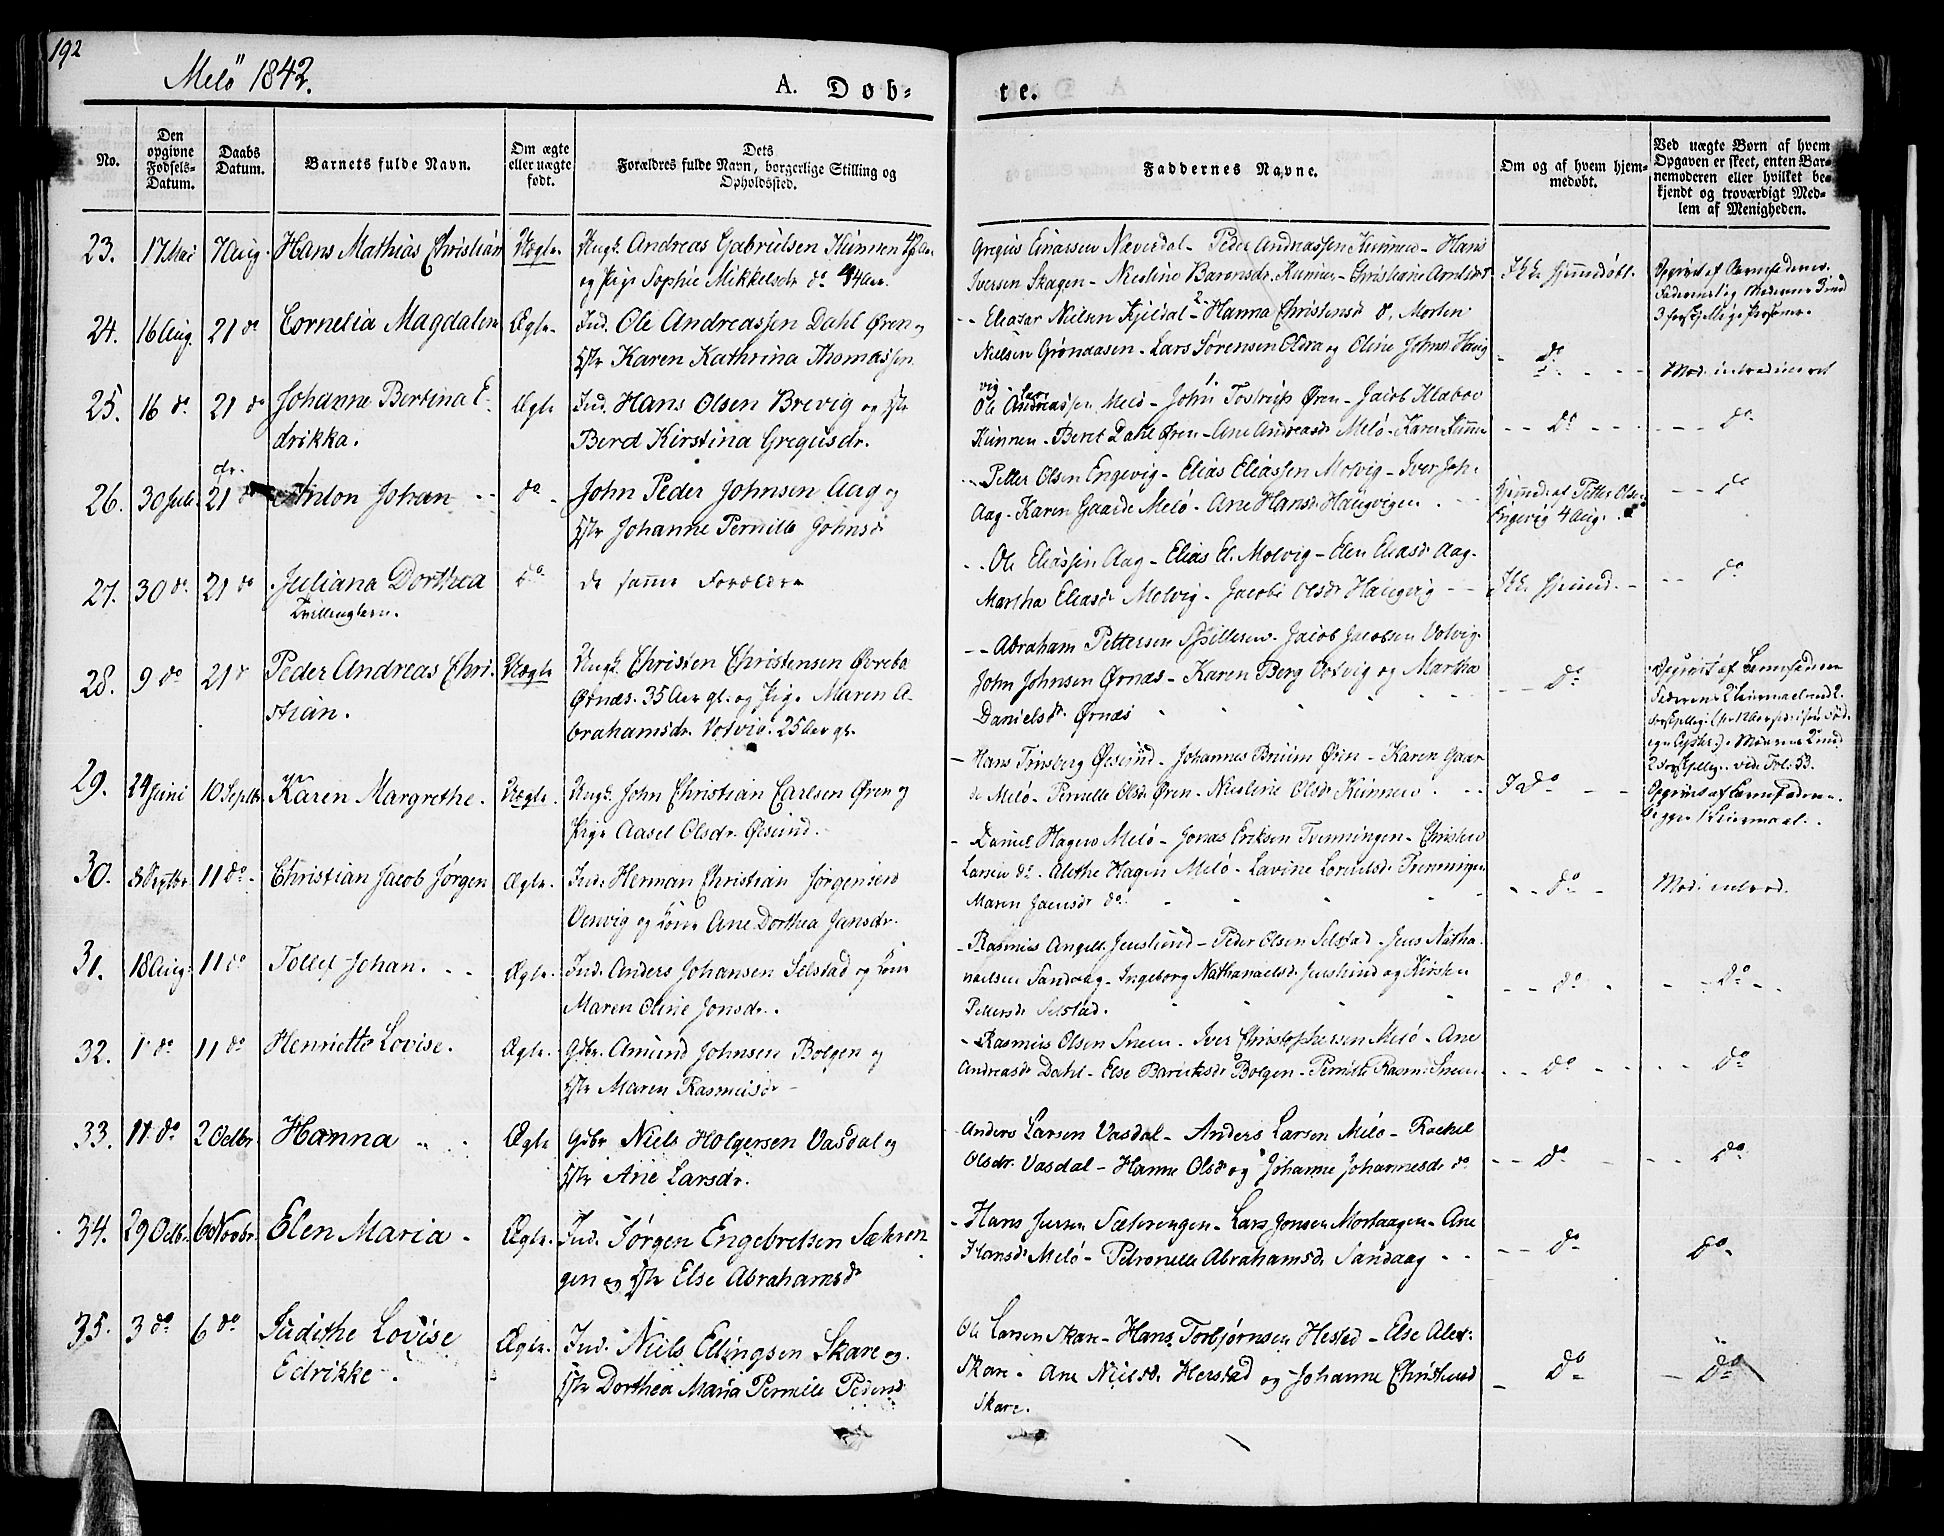 192
Melö 1842.
A. Døb-
te.
No.
Den opgivne Fødsels-Datum.
Daabs Datum.
Barnets fulde Navn.
Om ægte eller uægte født.
Dets
Forældres fulde Navn, borgerlige Stilling og Opholdssted.
Faddernes Navne.
Om og af hvem hjem-
medøbt.
Ved uægte Børn af hvem
Opgaven er skeet, enten Bar-
nemoderen eller hvilket be-
kjendt og troværdigt Med-
lem af Menigheden.
23. 17 Mai 7 Aug. Hans Mathias Christian Uægte. Ungk. Andreas Gabrielsen Kunnen
og Pige Sophie Mikkelsdr do 44 Aar.
Gregus Einarsen Næverdal - Peder Andreassen Kunnen - Hans
Iversen Skagen - Nicoline Barensdr. Kunnen - Christiane
24. 16 Aug. 21 do Cornelia Magdalena Ægte Ind. Ole Andreassen Dahl Øren og
Hstr Karen Kathrina Thomassen
Eliasar Nielsen Kjeldal - Hanna Christensd Morten
Nielsen Grönaasen - Lars Sörensen Oldra og Oline Johnsd Haug
vig
do
Mod. introduceret
25. 16 do. 21 do Johanne Bertina E-
drikka.
Ægte Ind. Hans Olsen Brevig og Hstr
Berd Kirstina Gregusdr.
Ole Andreassen Melö - John Tostrup Øren - Jacob Klæboe
Kunnen - Beret Dahl Øren - Ane Andreasdr Melö - Karen
do do
26. 30 Juli 21 do Anton Johan do John Peder Johnsen Aag og
Hstr Johanne Pernille Johnsd
Petter Olsen Engevig - Elias Eliassen Molvig - Iver Joh.
Aag - Karen Gaarde Melö - Ane Hansdr Haugvigen
Hjemmed. af Petter Olsen
Engevig 4 Aug.
do
27. 30 do. 21 do Juliana Dorthea
Tvillingbørn.
do de samme Forældre
Ole Eliassen Aag - Elias El. Molvig - Elen Eliasdr Aag.
Martha Eliasdr Molvig - Jacobi Olsdr Haugvig
do
28. 9 do 21 Peder Andreas Chri-
stian.
Uægte Ungk. Christen Christensen Øvrebø
Ørnæs. 35 Aar gl. og Pige Maren A-
brahamsdr. Votvig. 25 Aar gl.
Abraham Pettersen Spilleren. Jacob Jacobsen Votvig.
John Johnsen Ørnæs - Karen Berg Votvig og Martha
Danielsdr Ørnæs
do
29. 24 Juni 10 Septbr Karen Margrethe. Uægte. Ungk. John Christian Carlsen Øren og
Pige Aasel Olsdr. Øesund.
Hans Trinsberg Øesund - Johannes Bruun Øren - Karen Gaar
de Melö - Pernelle Olsdr Øren - Nicoline Olsdr Kunnen
do
30. 3 Septbr 11 do. Christian Jacob Jørgen Ægte. Ind. Herman Christian Jørgensen
Venvig og Kone Ane Dorthea Jansdr.
Daniel Hagen Melö - Jonas Eriksen Tvenningen - Christen
Larsen do. Alethe Hagen Melö - Lavine Lorentsdr Tvenningen
Maren do.
do
Mod. introd.
31. 18 Aug. 11 do Tollef Johan. Ægte. Ind. Anders Johansen Selstad og Kone
Maren Oline Jonsdr.
Rasmus Angell Jenslund - Peder Olsen Selstad - Jens Natha-
naelsen Sandaag - Ingeborg Nathanaelsdr Jenslund og Kirsten
Pettersdr Selstad.
do do
32. 1 do 11 do Henriette Lovise. Ægte. Gdbr. Amund Johnsen Bolgen og
Hstr Maren Rasmusdr
Rasmus Olsen Sneen - Iver Christophersen Melö - Ane
Andreasdr Dahl - Else Bolgen - Pernille Rasm: Sneen.
do do
33. 11 do 2 Octbr Hanna Ægte Gdbr Niels Holgersen Vasdal og
Hstr Ane Larsdr.
Anders Larsen Vasdal - Anders Larsen Melö - Rachel
Olsdr. Vasdal - Hanne Olsdr og Johanne Johannesdr do
do do
34. 29 Octbr. 6 Novbr. Elen Maria Ægte. Ind. Jørgen Engebretsen Sætren
gen og Hstr Else Abrahamsdr
Hans Jensen Sæterengen - Lars Jonsen Mosaagen - Ane
Hansdr Melö - Petronelle Abrahamsdr Sandaag
do do
35. 3 do 6 do Judithe Lovise
Edrikke.
Ægte. Ind. Niels Ellingsen Skare og
Hstr Dorthea Maria Pernille Pedersd
Ole Larsen Skare - Hans Torbjørnsen Hestad - Else
Skare - Ane Nielsdr. Herstad og Johanne
Skare.
do do